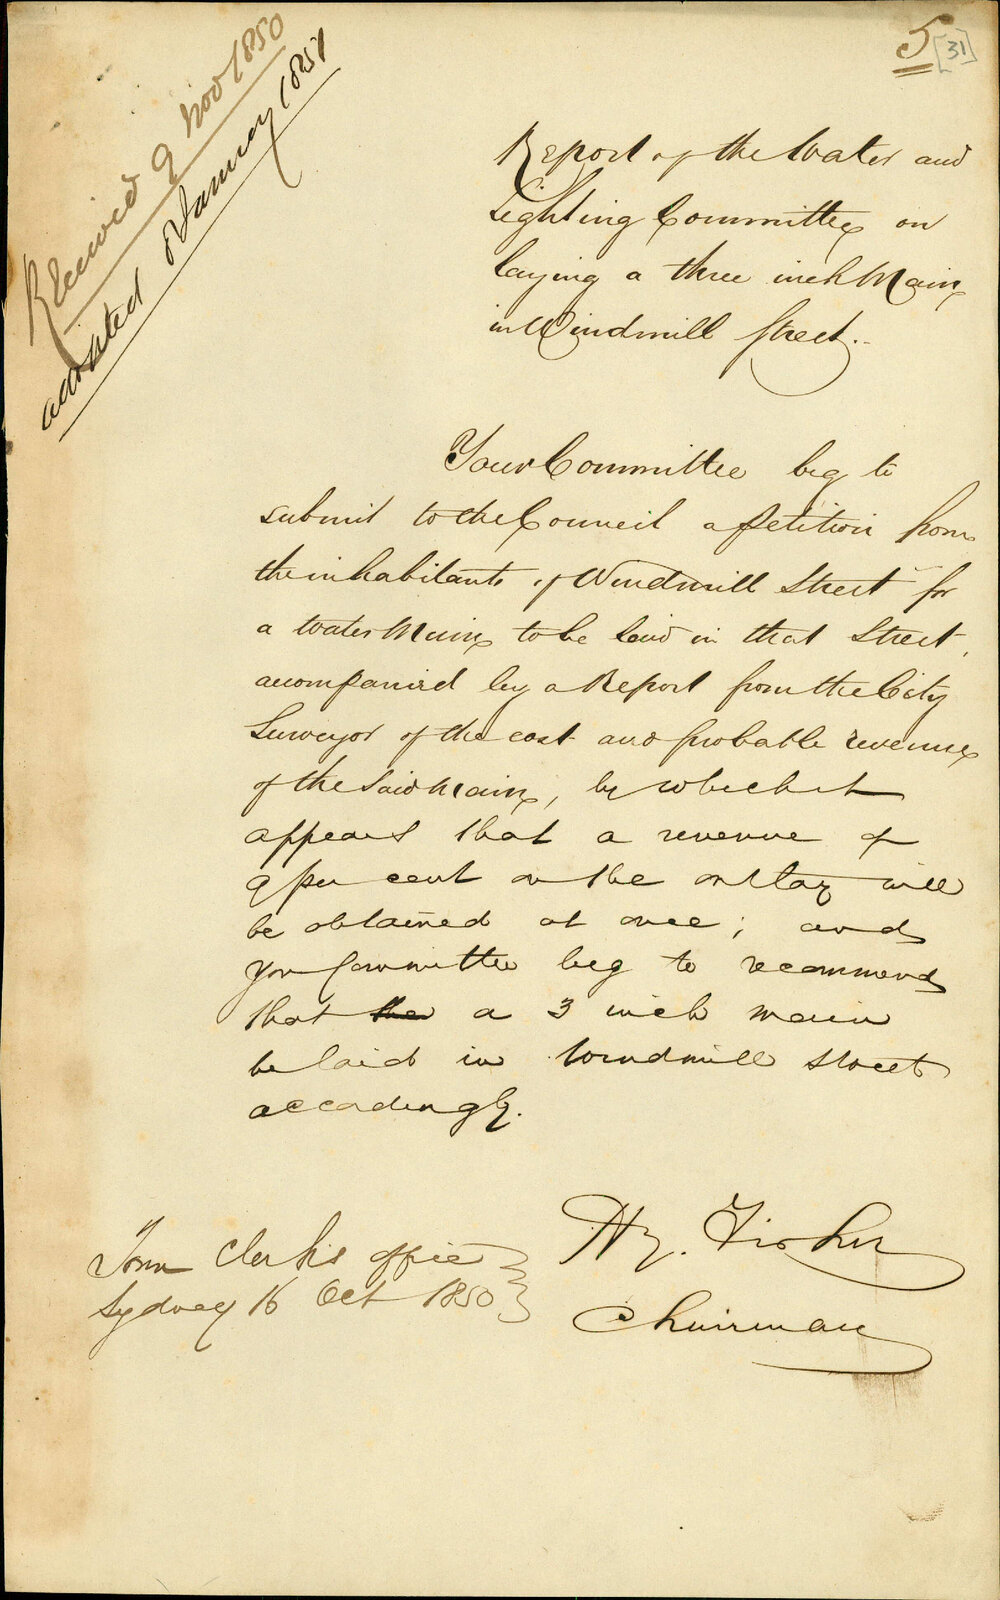 5 [31]
Received 9 Nov 1850
adopted January 1851
Report of the Water and
Lighting Committee on
laying a three inch Main
in Windmill Street.
Your Committee beg to
submit to the Council a Petition from
the inhabitants of Windmill Street for
a Water Main to be laid in that Street,
accompanied by a Report from the City
Surveyor of the cost and probable revenue
of the said Main, by which it
appears that a revenue of
9 per cent on the outlay will
be obtained at once; and
your Committee beg to recommend
that the a 3 inch main
be laid in Windmill Street
accordingly.
Town Clerk's office
Sydney 16 Oct 1850
Hy. Fisher
Chairman